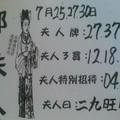 7月25.27.30日
夫人牌:27.37
夫人3首:12.18.
夫人特别招待:04
夫人曰:二九旺
夫人